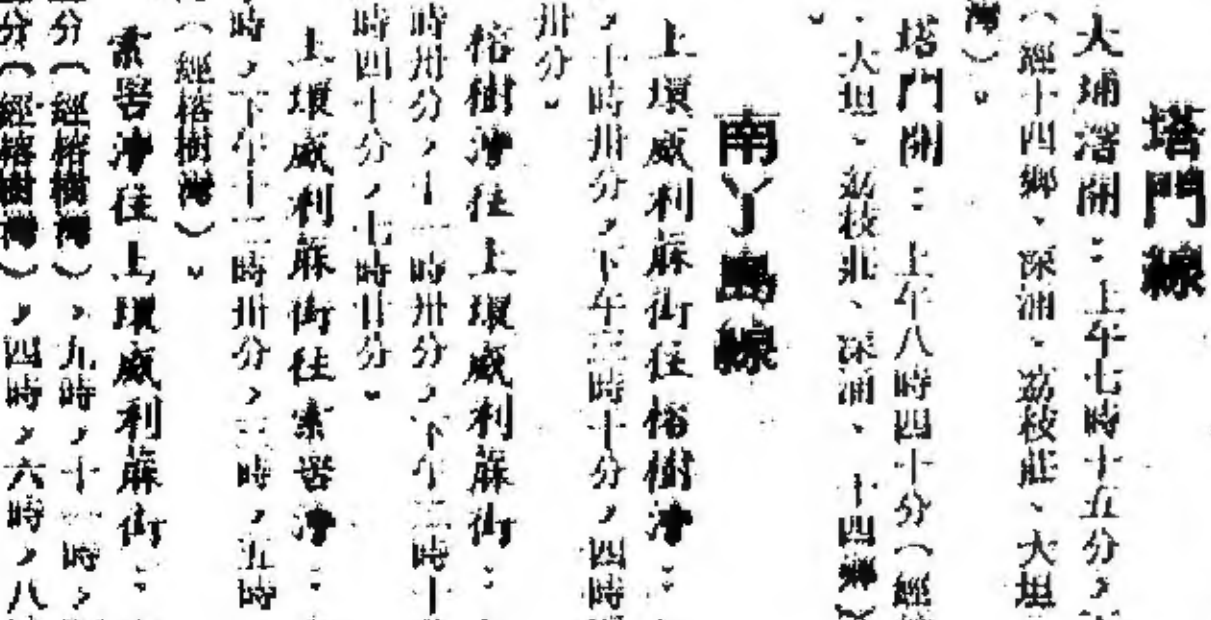 塔門線
大埔滘開：上午七時十五分，
（經十四鄉、深涌、荔枝莊、大坦
灣）。
塔門開：上午八時四十分（經
、大坦、荔枝莊、深涌、十四鄉）
。
南丫島線
上環威利蔴街往榕樹灣：
，十時卅分，下午三時十分，四時
卅分。
榕樹灣往上環威利蔴街：
時卅分，十一時卅分，下午三時十
時四十分，七時廿分。
上環威利蔴街往索罟灣：
時，下午十二時卅分，三時，五時
（經榕樹灣）。
索罟灣往上環威利蔴街：
分（經榕樹灣），九時，十一時，
分（經榕樹灣），四時，六時，八